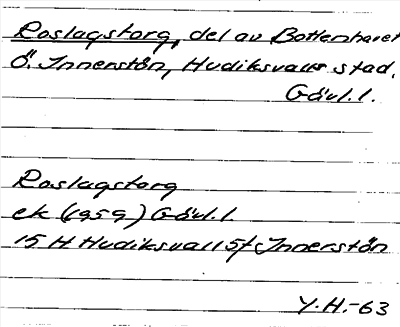 Roslagstorg, del av Bottenhavet
Ö. Innerstön, Hudiksvalls stad.
Gävl.l.
Roslagstorg
ek (1959) Gävl.l
15 H Hudiksvall 5f Innerstön
Y.H.-63